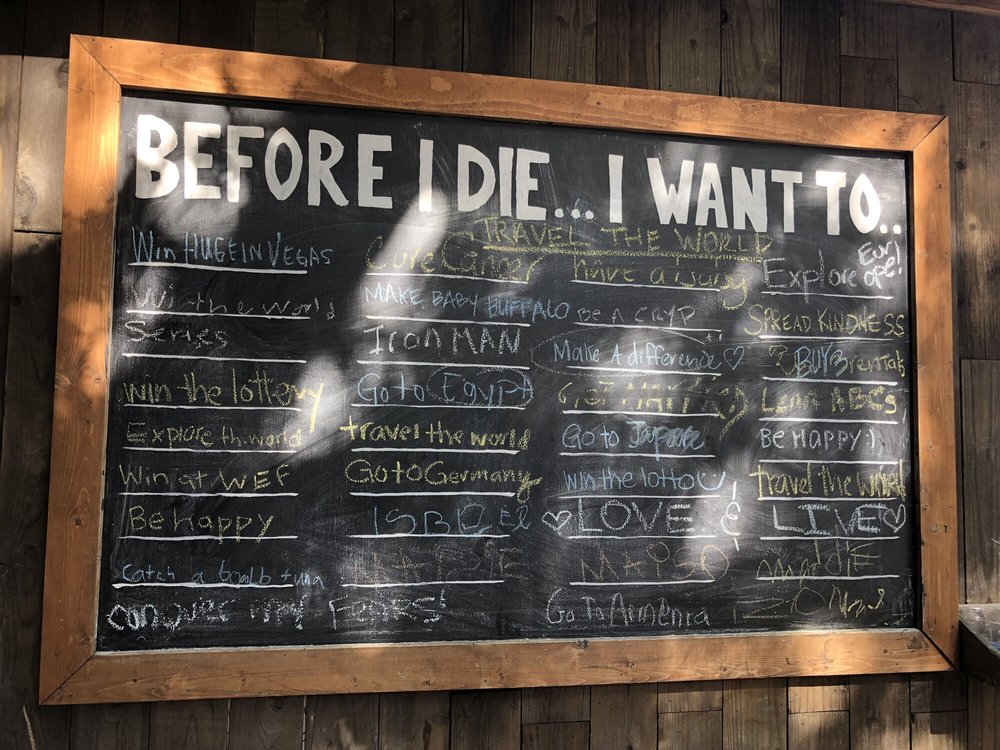 BEFORE I DIE... I WANT TO..
TRAVEL THE WORLD
Win HUGE IN VEGAS
Win the world
Series
win the lottery
Explore th world
Win at WEF
Be happy
catch a goal b tuna
conquer my FEARS!
Cure Cancer
MAKE BABY BUFFALO
Iron MAN
Go to Egypt
travel the world
Go to Germany
ISRael
have a
BE A CRYP
Make A difference ♡
Go to
win the lotto
♡ LOVE
MAPSO
Go To Armenia
Explore Europe!
SPREAD KINDNESS
BUY
Learn ABCs
Be HAPPY :)
travel the world
LIVE ♡